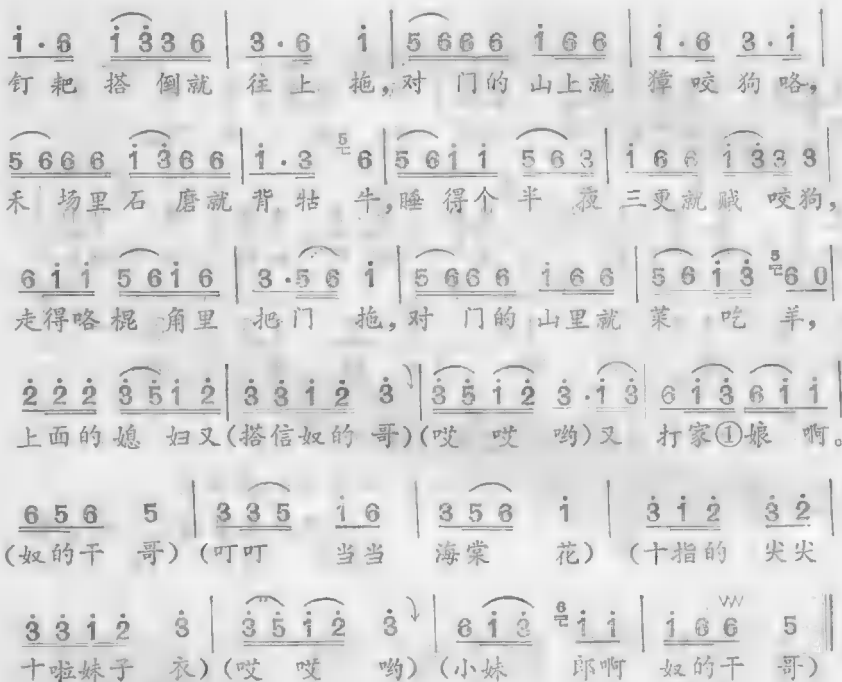 i · 6 i 3 3 6 | 3 · 6 i | 5 6 6 6 i 6 6 | i · 6 3 · i |
钉耙搭倒就往上拖,对门的山上就獐咬狗咯,
5 6 6 6 i 3 6 6 | i · 3 5 6 | 5 6 i i 5 6 3 | i 6 6 i 3 3 3 |
禾场里石磨就背牯牛,睡得个半夜三更就贼咬狗,
6 i i 5 6 i 6 | 3 · 5 6 i | 5 6 6 6 i 6 6 | 5 6 i 3 5 6 0 |
走得咯棍角里把门拖,对门的山里就菜吃羊,
2 2 2 3 5 i 2 | 3 3 i 2 3 | 3 5 i 2 3 · i 3 | 6 i 3 6 i i |
上面的媳妇又(搭信奴的哥)(哎哎哟)又打家①娘啊。
6 5 6 5 | 3 3 5 i 6 | 3 5 6 i | 3 i 2 3 2 |
(奴的干哥)(叮叮当当海棠花)(十指的尖尖
3 3 i 2 3 | 3 5 i 2 3 | 6 i 3 6 i i | i 6 6 5 ‖
十啦妹子衣)(哎哎哟)(小妹郎啊奴的干哥)